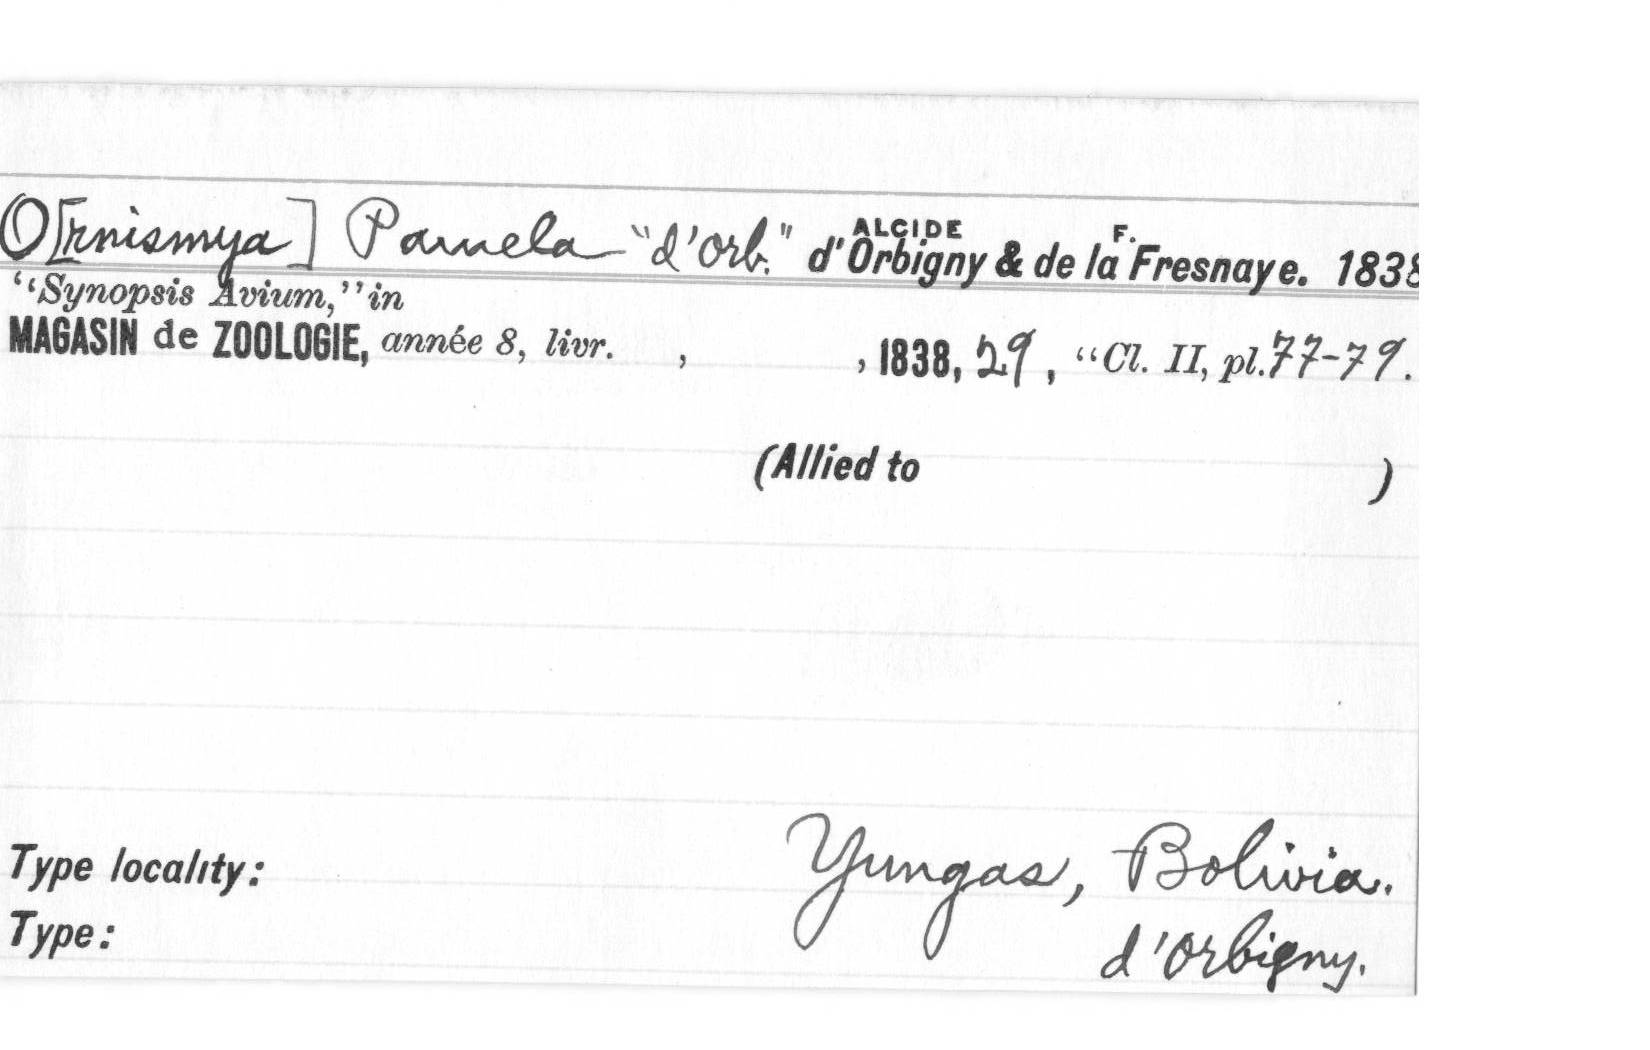 O[rnismya] Pamela "d'Orb." ALCIDE d'Orbigny & de la F. Fresnaye. 1838
"Synopsis Avium," in
MAGASIN de ZOOLOGIE, année 8, livr. , , 1838, 29, "Cl. II, pl. 77-79.
(Allied to )
Type locality: Yungas, Bolivia.
Type: d'Orbigny.